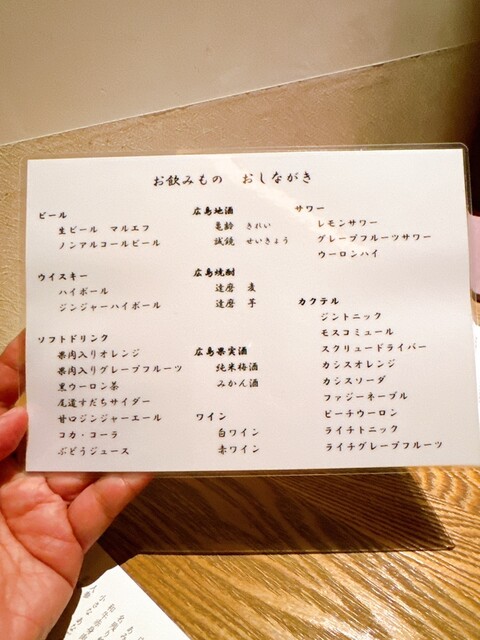 お飲みもの　おしながき
ビール
生ビール　マルエフ
ノンアルコールビール
ウイスキー
ハイボール
ジンジャーハイボール
ソフトドリンク
果肉入りオレンジ
果肉入りグレープフルーツ
黒ウーロン茶
尾道すだちサイダー
甘口ジンジャーエール
コカ・コーラ
ぶどうジュース
広島地酒
亀齢　きれい
誠鏡　せいきょう
広島焼酎
達磨　麦
達磨　芋
広島果実酒
純米梅酒
みかん酒
ワイン
白ワイン
赤ワイン
サワー
レモンサワー
グレープフルーツサワー
ウーロンハイ
カクテル
ジントニック
モスコミュール
スクリュードライバー
カシスオレンジ
カシスソーダ
ファジーネーブル
ピーチウーロン
ライチトニック
ライチグレープフルーツ